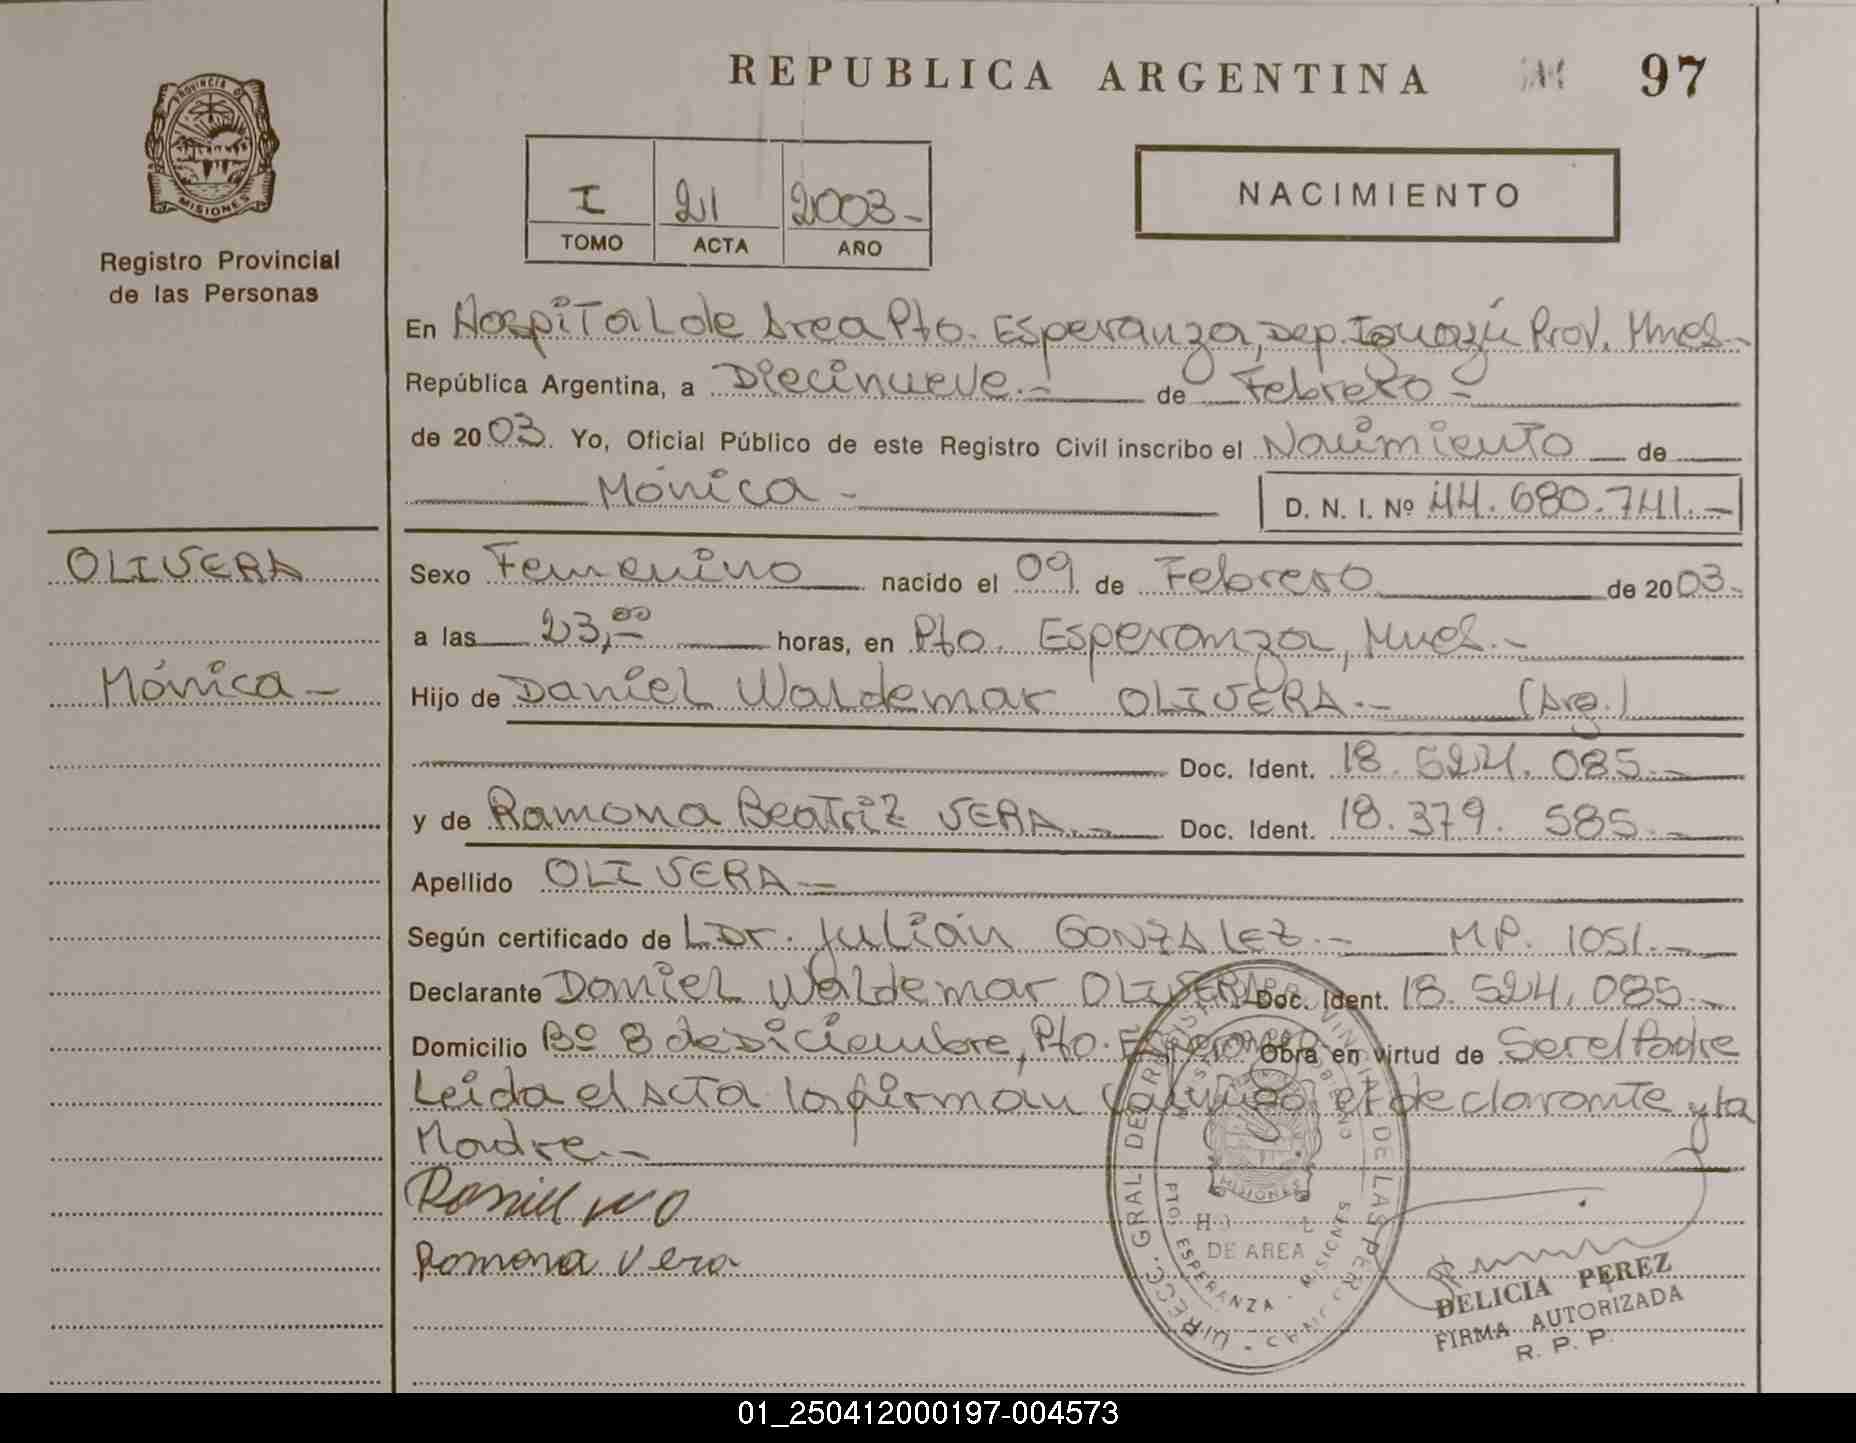 REPUBLICA ARGENTINA 97
PROVINCIA DE
MISIONES
Registro Provincial
de las Personas
I 21 2003-
TOMO ACTA AÑO
NACIMIENTO
En Hospital de Area Pto. Esperanza, Dep. Iguazú Prov. Mnes.-
República Argentina, a Diecinueve.- de Febrero-
de 2003. Yo, Oficial Público de este Registro Civil inscribo el Nacimiento de
Mónica- D. N. I. Nº 44.680.741.-
OLIVERA
Mónica-
Sexo Femenino nacido el 09 de Febrero de 2003.-
a las 23,00 horas, en Pto. Esperanza, Mnes.-
Hijo de Daniel Waldemar OLIVERA.- (Arg.)
Doc. Ident. 18.524.085.-
y de Ramona Beatriz VERA.- Doc. Ident. 18.379.585.-
Apellido OLIVERA-
Según certificado de Dr. Julián GONZALEZ.- M.P. 1051.-
Declarante Daniel Waldemar OLIVERA Doc. Ident. 18.524.085.-
Domicilio Bº 8 de Diciembre, Pto. Esperanza Obra en virtud de Ser el Padre
Leida el Acta la firman conmigo el declarante y la
Madre.-
Daniel W O
Ramona Vera
MISIONES
DE AREA
PTO. ESPERANZA - MISIONES
DELICIA PEREZ
FIRMA AUTORIZADA
R. P. P.
01_250412000197-004573